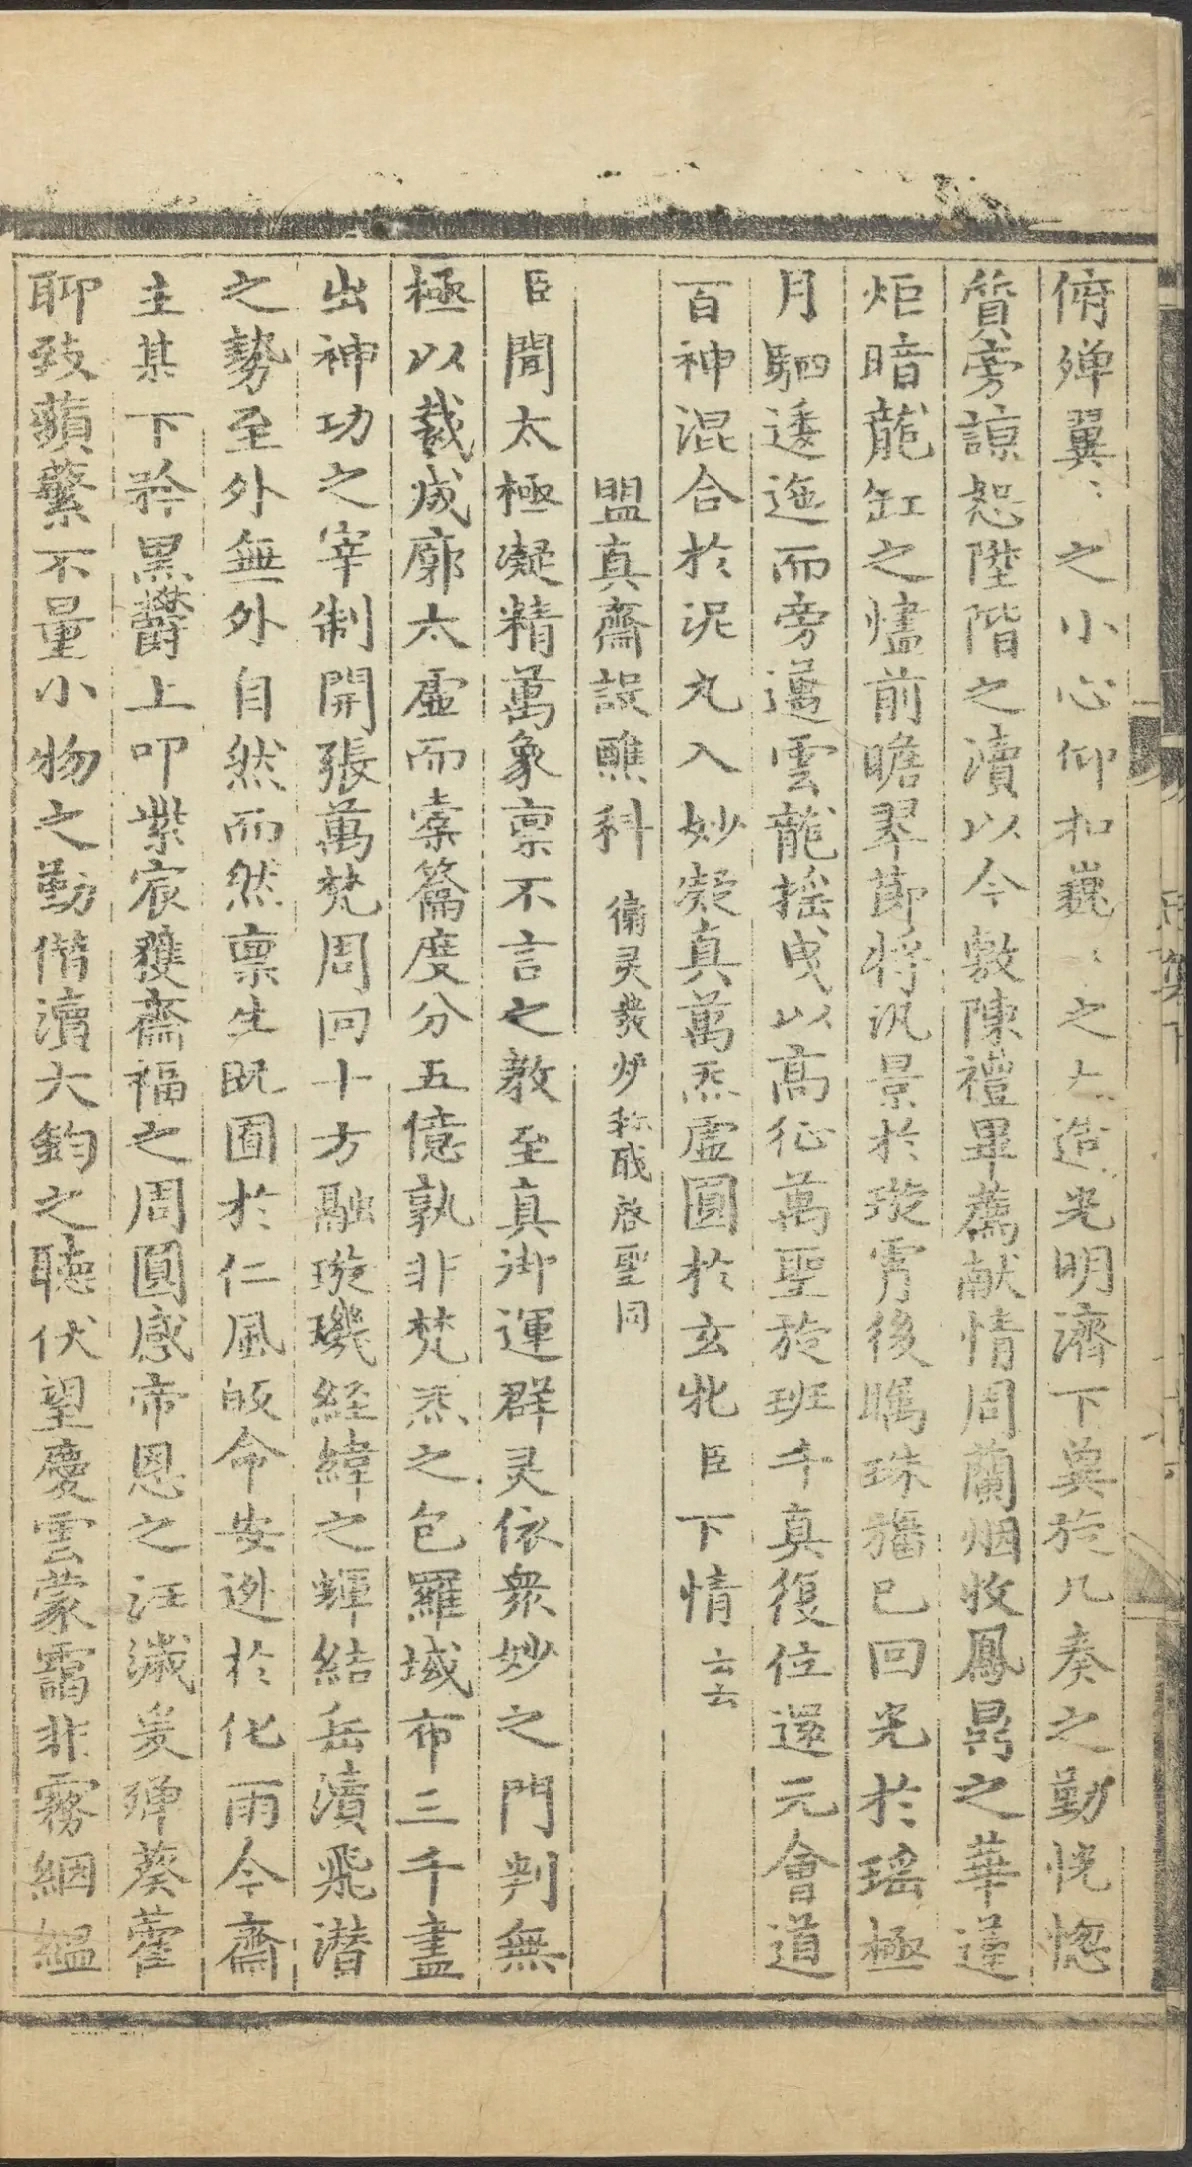 俯殫翼〻之小心仰扣巍〻之大造光明濟下奠於凡奏之勤恍惚
質旁諒恕陞階之瀆以今敷陳禮畢薦献情周蘭烟收鳳鼎之華蓬
炬暗龍缸之燼前瞻翠節将汎景於璇霄後矚珠旛已回光於瑤極
月駟逶迤而旁邁雲龍摇曳以高征萬聖旋班千真復位還元會道
百神混合於泥丸入妙凝真萬炁虛圓於玄牝臣下情云云
盟真齋設醮科 衛灵發炉称戝啓聖同
臣聞太極凝精萬象禀不言之教至真御運群灵依衆妙之門判無
極以裁成廓太虛而橐籥度分五億孰非梵炁之包羅域布三千盡
出神功之宰制開張萬梵周回十方融璇璣経緯之輝結岳瀆飛潜
之勢至外無外自然而然禀生既囿於仁風皈命安逃於化雨今齋
主某下矜黒欝上叩紫宸獲齋福之周圓感帝恩之汪濊爰殫葵藿
聊致蘋蘩不量小物之勤僭瀆大鈞之聽伏望慶雲蒙靄非霧絪緼